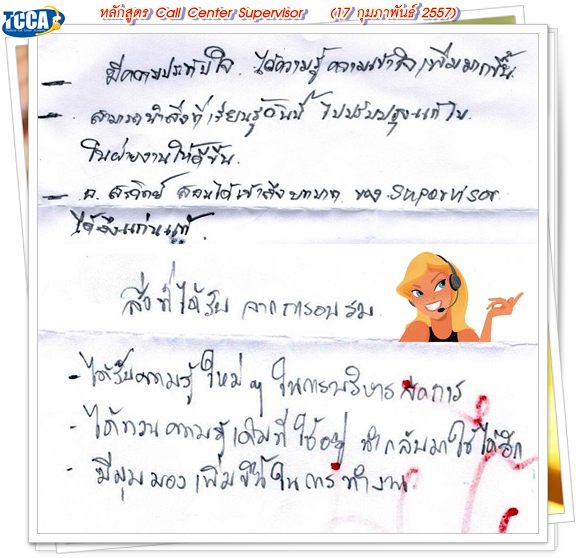 TCCA
หลักสูตร Call Center Supervisor (17 กุมภาพันธ์ 2557)
- มีความประทับใจ ได้ความรู้ ความเข้าใจ เพิ่มมากขึ้น.
- สามารถนำสิ่งที่เรียนรู้วันนี้ ไปปรับปรุงแก้ไข
ในฝ่ายงานให้ดีขึ้น.
- อ. สอนได้เข้าถึง บทบาท ของ Supervisor
ได้ถึงแก่นแท้.
สิ่งที่ได้รับ จากการอบรม
- ได้รับความรู้ ใหม่ ๆ ในการบริหาร จัดการ
- ได้ทวนความรู้เดิมที่ใช้อยู่ นำกลับมาใช้ได้อีก
- มีมุมมองเพิ่มขึ้นในการทำงาน